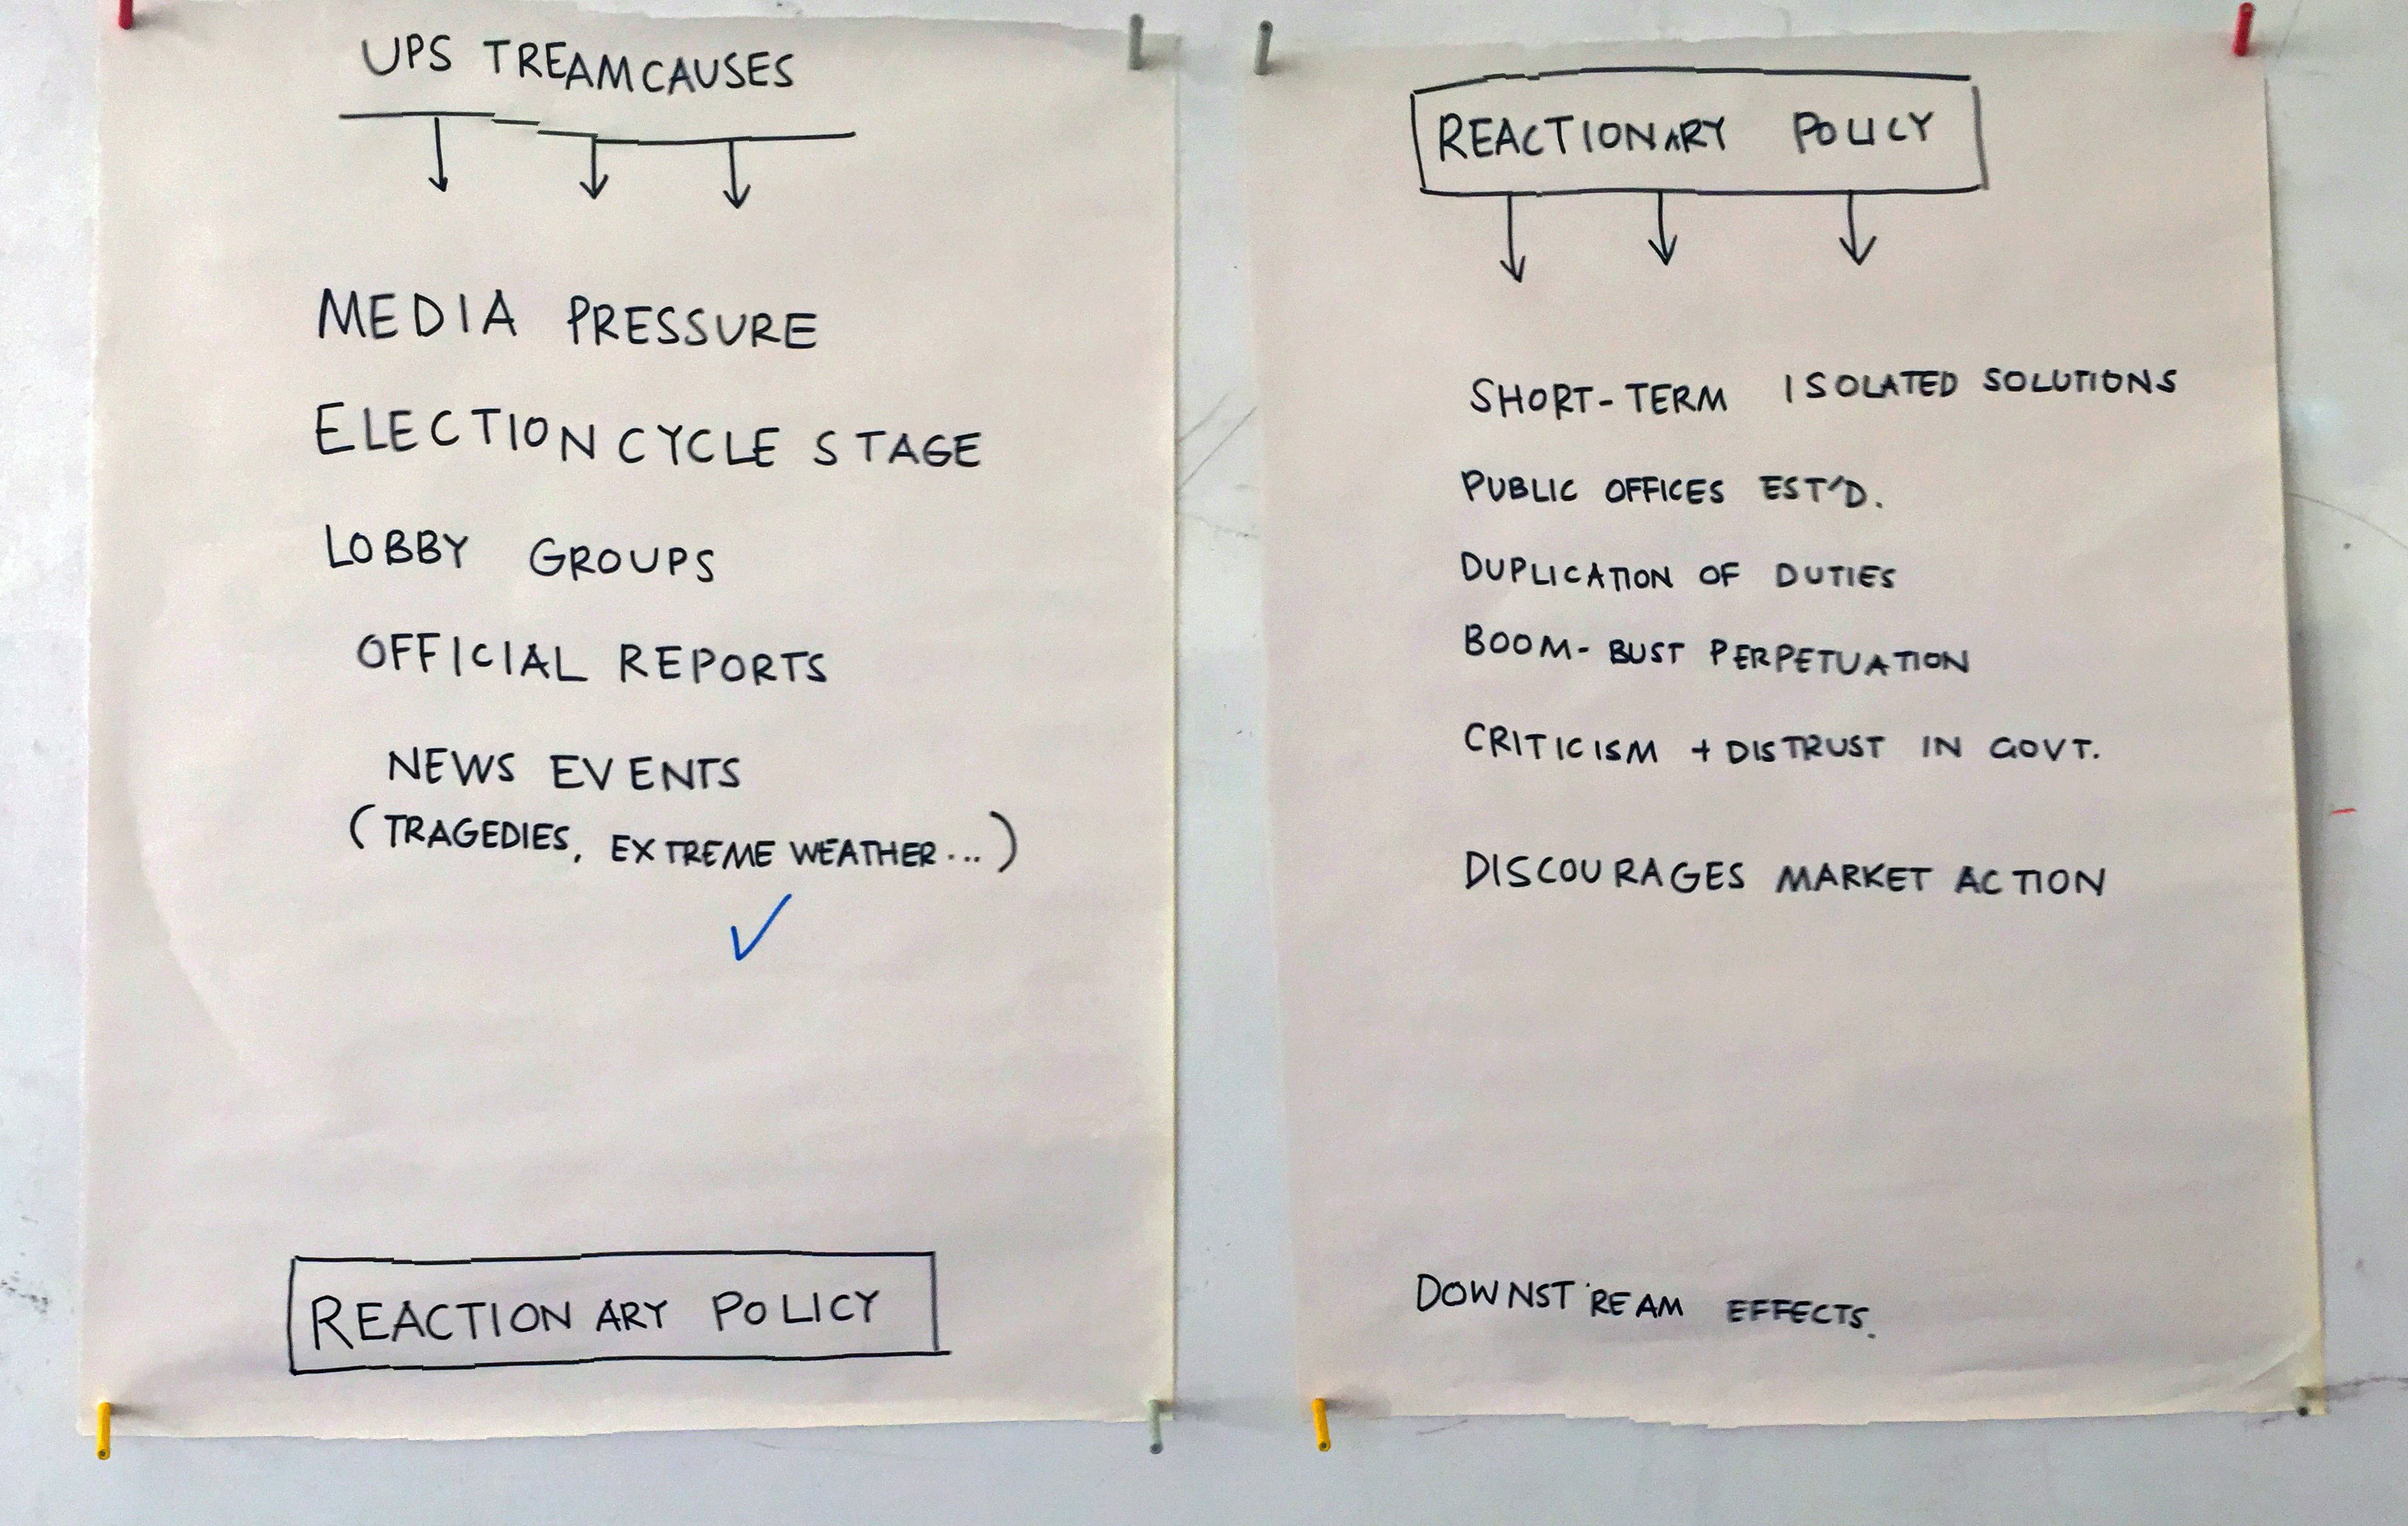 UPSTREAM CAUSES
MEDIA PRESSURE
ELECTION CYCLE STAGE
LOBBY GROUPS
OFFICIAL REPORTS
NEWS EVENTS
(TRAGEDIES, EXTREME WEATHER...)
REACTIONARY POLICY
REACTIONARY POLICY
SHORT-TERM ISOLATED SOLUTIONS
PUBLIC OFFICES EST'D.
DUPLICATION OF DUTIES
BOOM-BUST PERPETUATION
CRITICISM + DISTRUST IN GOVT.
DISCOURAGES MARKET ACTION
DOWNSTREAM EFFECTS.